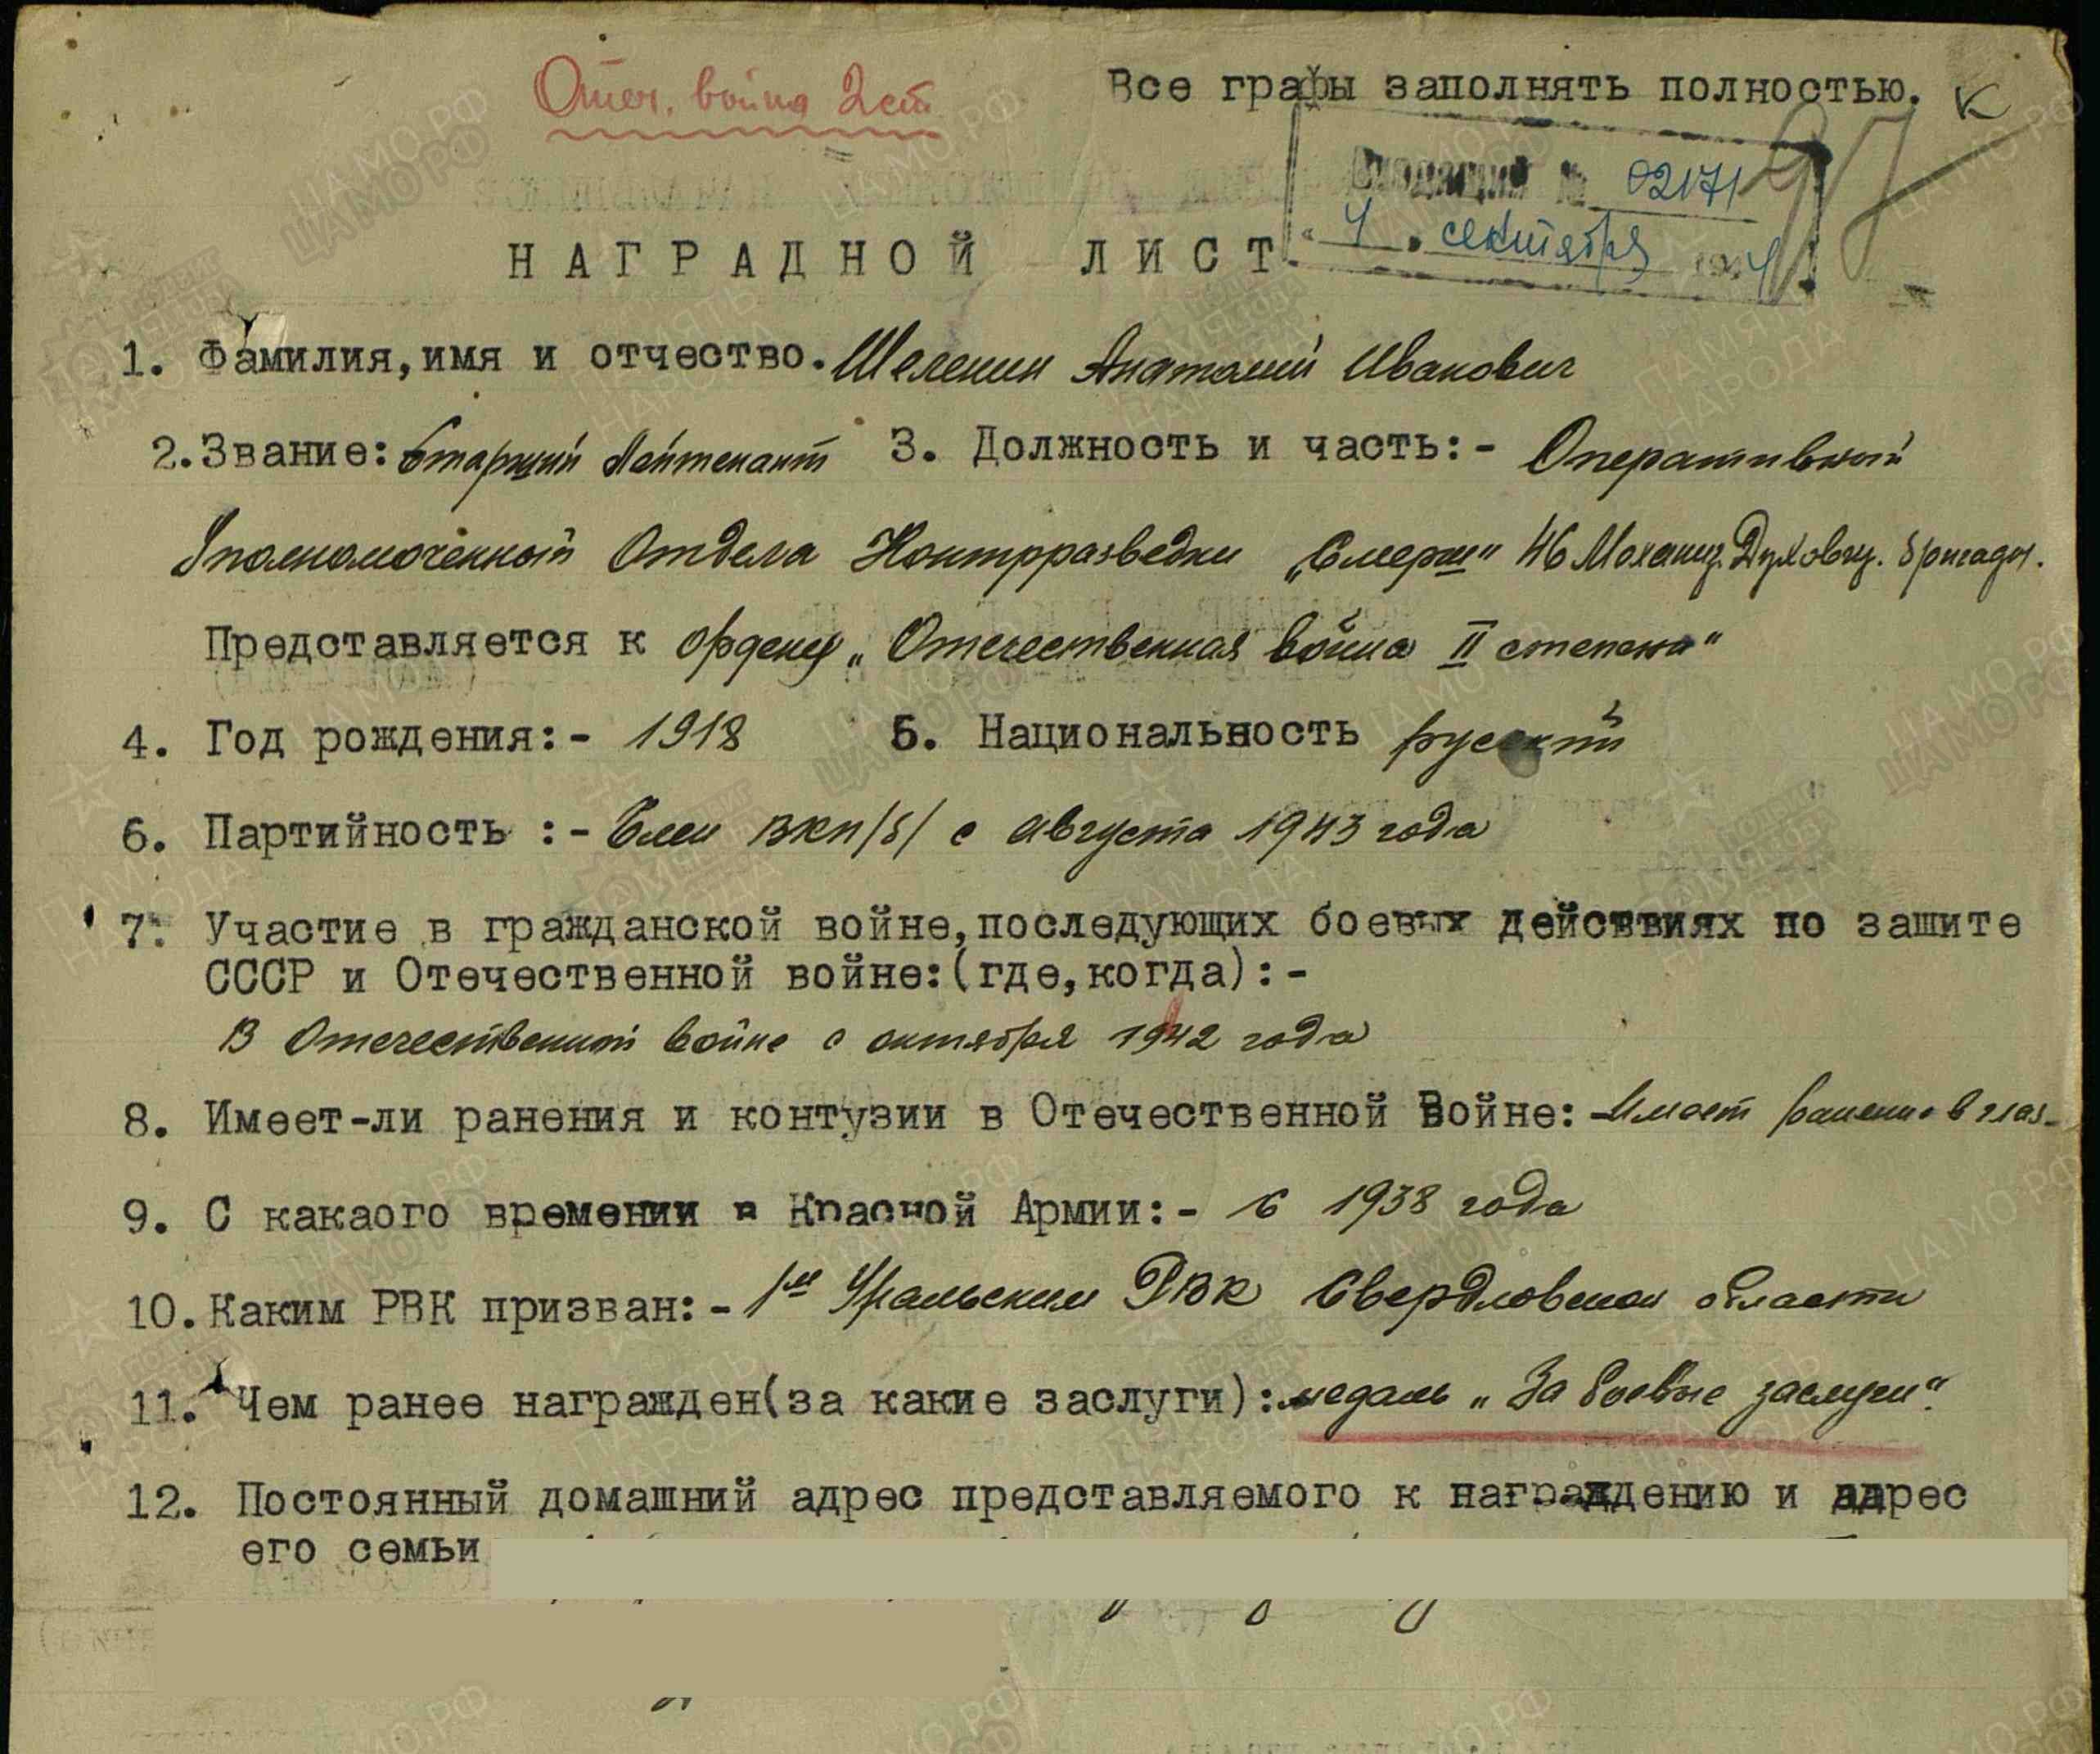 Отеч. война 2 ст
Все графы заполнять полностью. К
Входящий № 02171
НАГРАДНОЙ ЛИСТ
"4" сентября 1944
1. Фамилия, имя и отчество. Шеленин Анатолий Иванович
2. Звание: Старший Лейтенант 3. Должность и часть:- Оперативный
Уполномоченный Отдела Контрразведки „Смерш" 46 Механиз. Духовщ. бригады.
Представляется к ордену „Отечественная война II степени"
4. Год рождения:- 1918 5. Национальность русский
6. Партийность :- Член ВКП/б/ с августа 1943 года
7. Участие в гражданской войне, последующих боевых действиях по зашите
СССР и Отечественной войне: (где, когда):-
В Отечественной войне с октября 1942 года
8. Имеет-ли ранения и контузии в Отечественной Войне: Имеет ранение в глаз
9. С какаого времении в Красной Армии:- с 1938 года
10. Каким РВК призван:- 1м Уральским РВК Свердловской области
11. Чем ранее награжден (за какие заслуги): медаль „За боевые заслуги".
12. Постоянный домашний адрес представляемого к награждению и адрес
его семьи